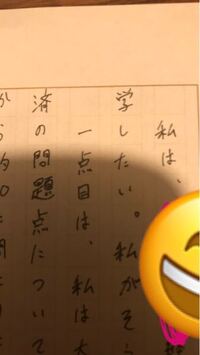 私は、
学したい。私がそ
一点目は、私は大
済の問題点について